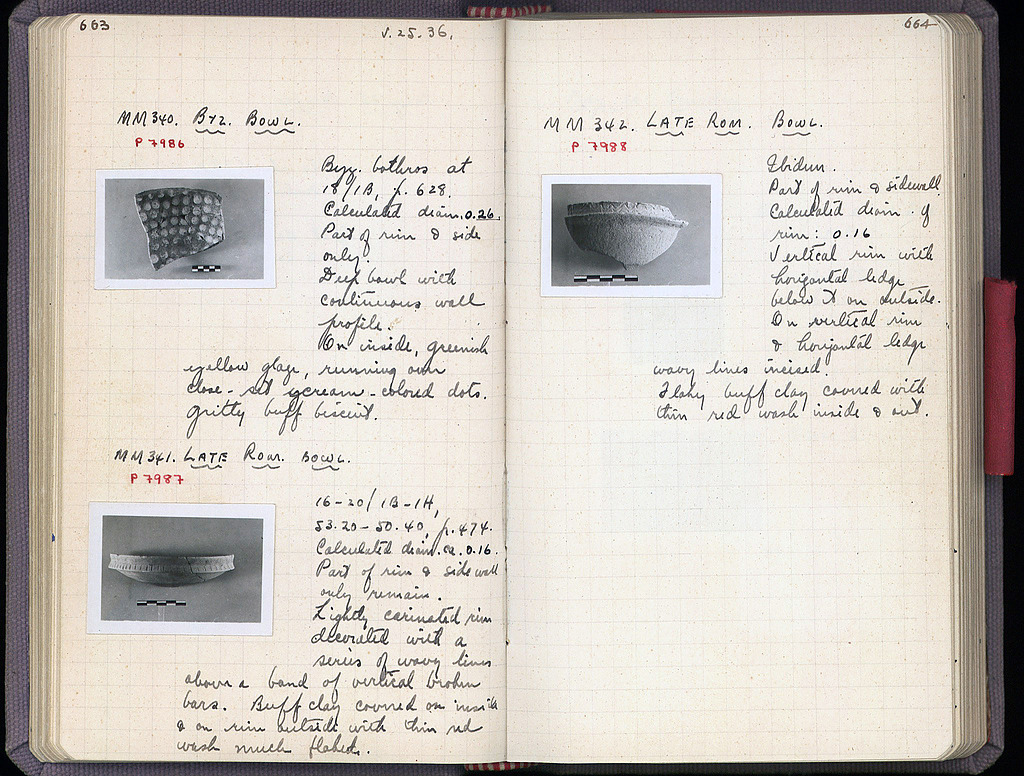 663
V.25.36.
MM340. BYZ. BOWL.
P 7986
Byz. bothros at
18/1B, p. 628.
Calculated diam. 0.26.
Part of rim & side
only.
Deep bowl with
continuous wall
profile.
On inside, greenish
yellow glaze, running over
close-set cream-colored dots.
Gritty buff biscuit.
MM341. LATE ROM. BOWL.
P 7987
16-20/1B-1H,
53.20-50.40, p. 474.
Calculated diam. ca. 0.16.
Part of rim & side wall
only remain.
Lightly carinated rim
decorated with a
series of wavy lines
above a band of vertical broken
bars. Buff clay covered on inside
& on rim outside with thin red
wash much flaked.
664
MM 342. LATE ROM. BOWL.
P 7988
Ibidem.
Part of rim & sidewall.
Calculated diam. of
rim: 0.16
Vertical rim with
horizontal ledge
below it on outside.
On vertical rim
& horizontal ledge
wavy lines incised.
Flaky buff clay covered with
thin red wash inside & out.